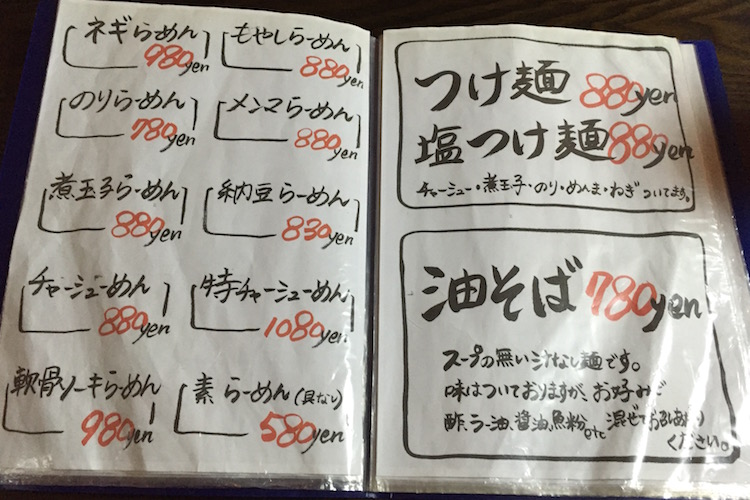 ネギらーめん
980yen
もやしらーめん
880yen
のりらーめん
780yen
メンマらーめん
880yen
煮玉子らーめん
880yen
納豆らーめん
830yen
チャーシューめん
880yen
特チャーシューめん
1080yen
軟骨ソーキらーめん
980yen
素らーめん(具なし)
580yen
つけ麺 880yen
塩つけ麺 880yen
チャーシュー・煮玉子・のり・めんま・ねぎ ついてます。
油そば 780yen
スープの無い汁なし麺です。
味はついておりますが、お好みで
酢、ラー油、醤油、魚粉etc 混ぜてお召しあがり
ください。